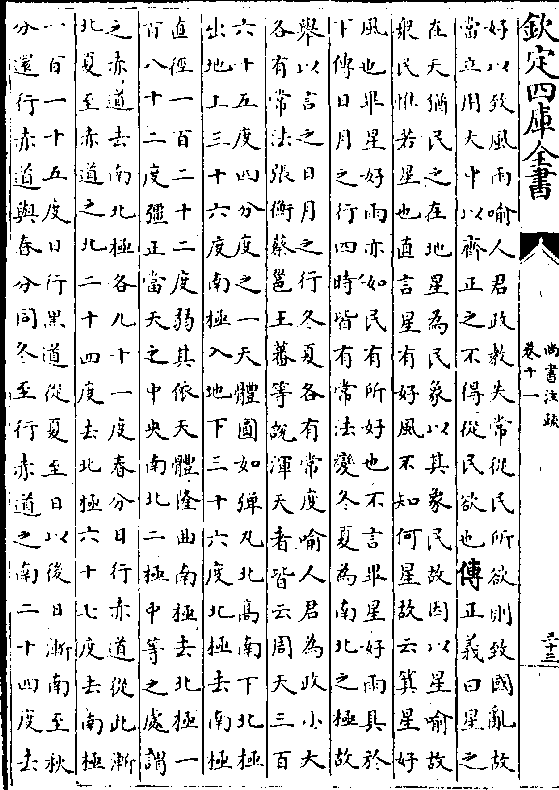 欽定四庫全書
尚書注疏
卷十一
三十三
好以致風雨喻人君政教失常從民所欲則致國亂故
當立用大中以齊正之不得從民欲也傳正義曰星之
在天猶民之在地星為民象以其象民故因以星喻故
衆民惟若星也直言星有好風不知何星故云箕星好
風也畢星好雨亦如民有所好也不言畢星好雨具於
下傳日月之行四時皆有常法變冬夏為南北之極故
舉以言之日月之行冬夏各有常度喻人君為政小大
各有常法張衡蔡邕王蕃等說渾天者皆云周天三百
六十五度四分度之一天體圓如彈丸北高南下北極
出地上三十六度南極入地下三十六度北極去南極
直徑一百二十二度弱其依天體隆曲南極去北極一
百八十二度彊正當天之中央南北二極中等之處謂
之赤道去南北極各九十一度春分日行赤道從此漸
北夏至赤道之北二十四度去北極六十七度去南極
一百一十五度日行黒道從夏至日以後日漸南至秋
分還行赤道與春分同冬至行赤道之南二十四度去